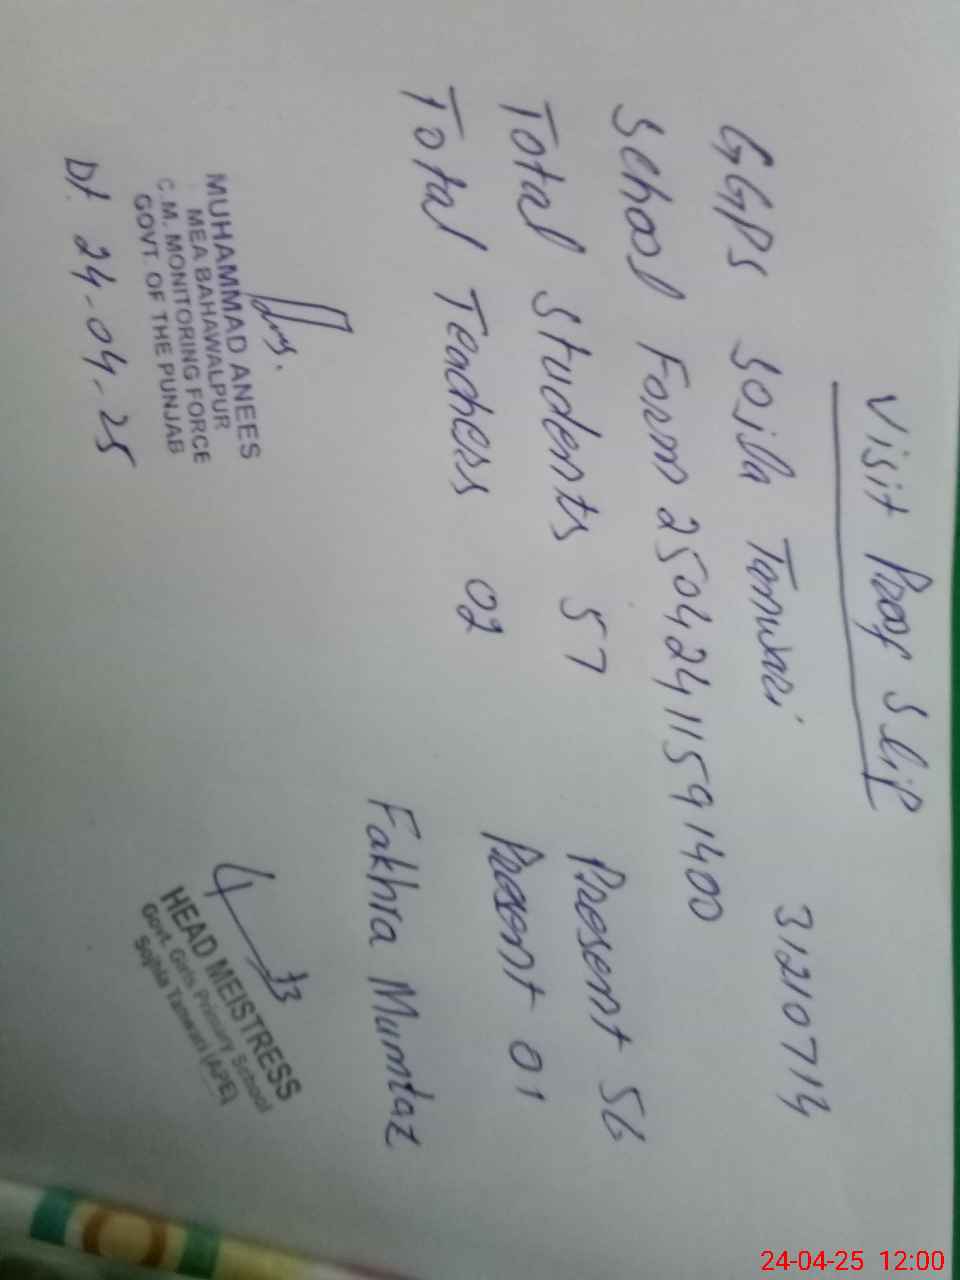 Visit Proof Slip
GGPS Sojila Tanwari 31210714
School Form 25042411591400
Total Students 57 Present 56
Total Teachers 02 Present 01
Fakhra Mumtaz
MUHAMMAD ANEES
MEA BAHAWALPUR
C.M. MONITORING FORCE
GOVT. OF THE PUNJAB
Dt. 24-04-25
HEAD MEISTRESS
Govt. Girls Primary School
Sojhla Tanwari (APE)
24-04-25 12:00